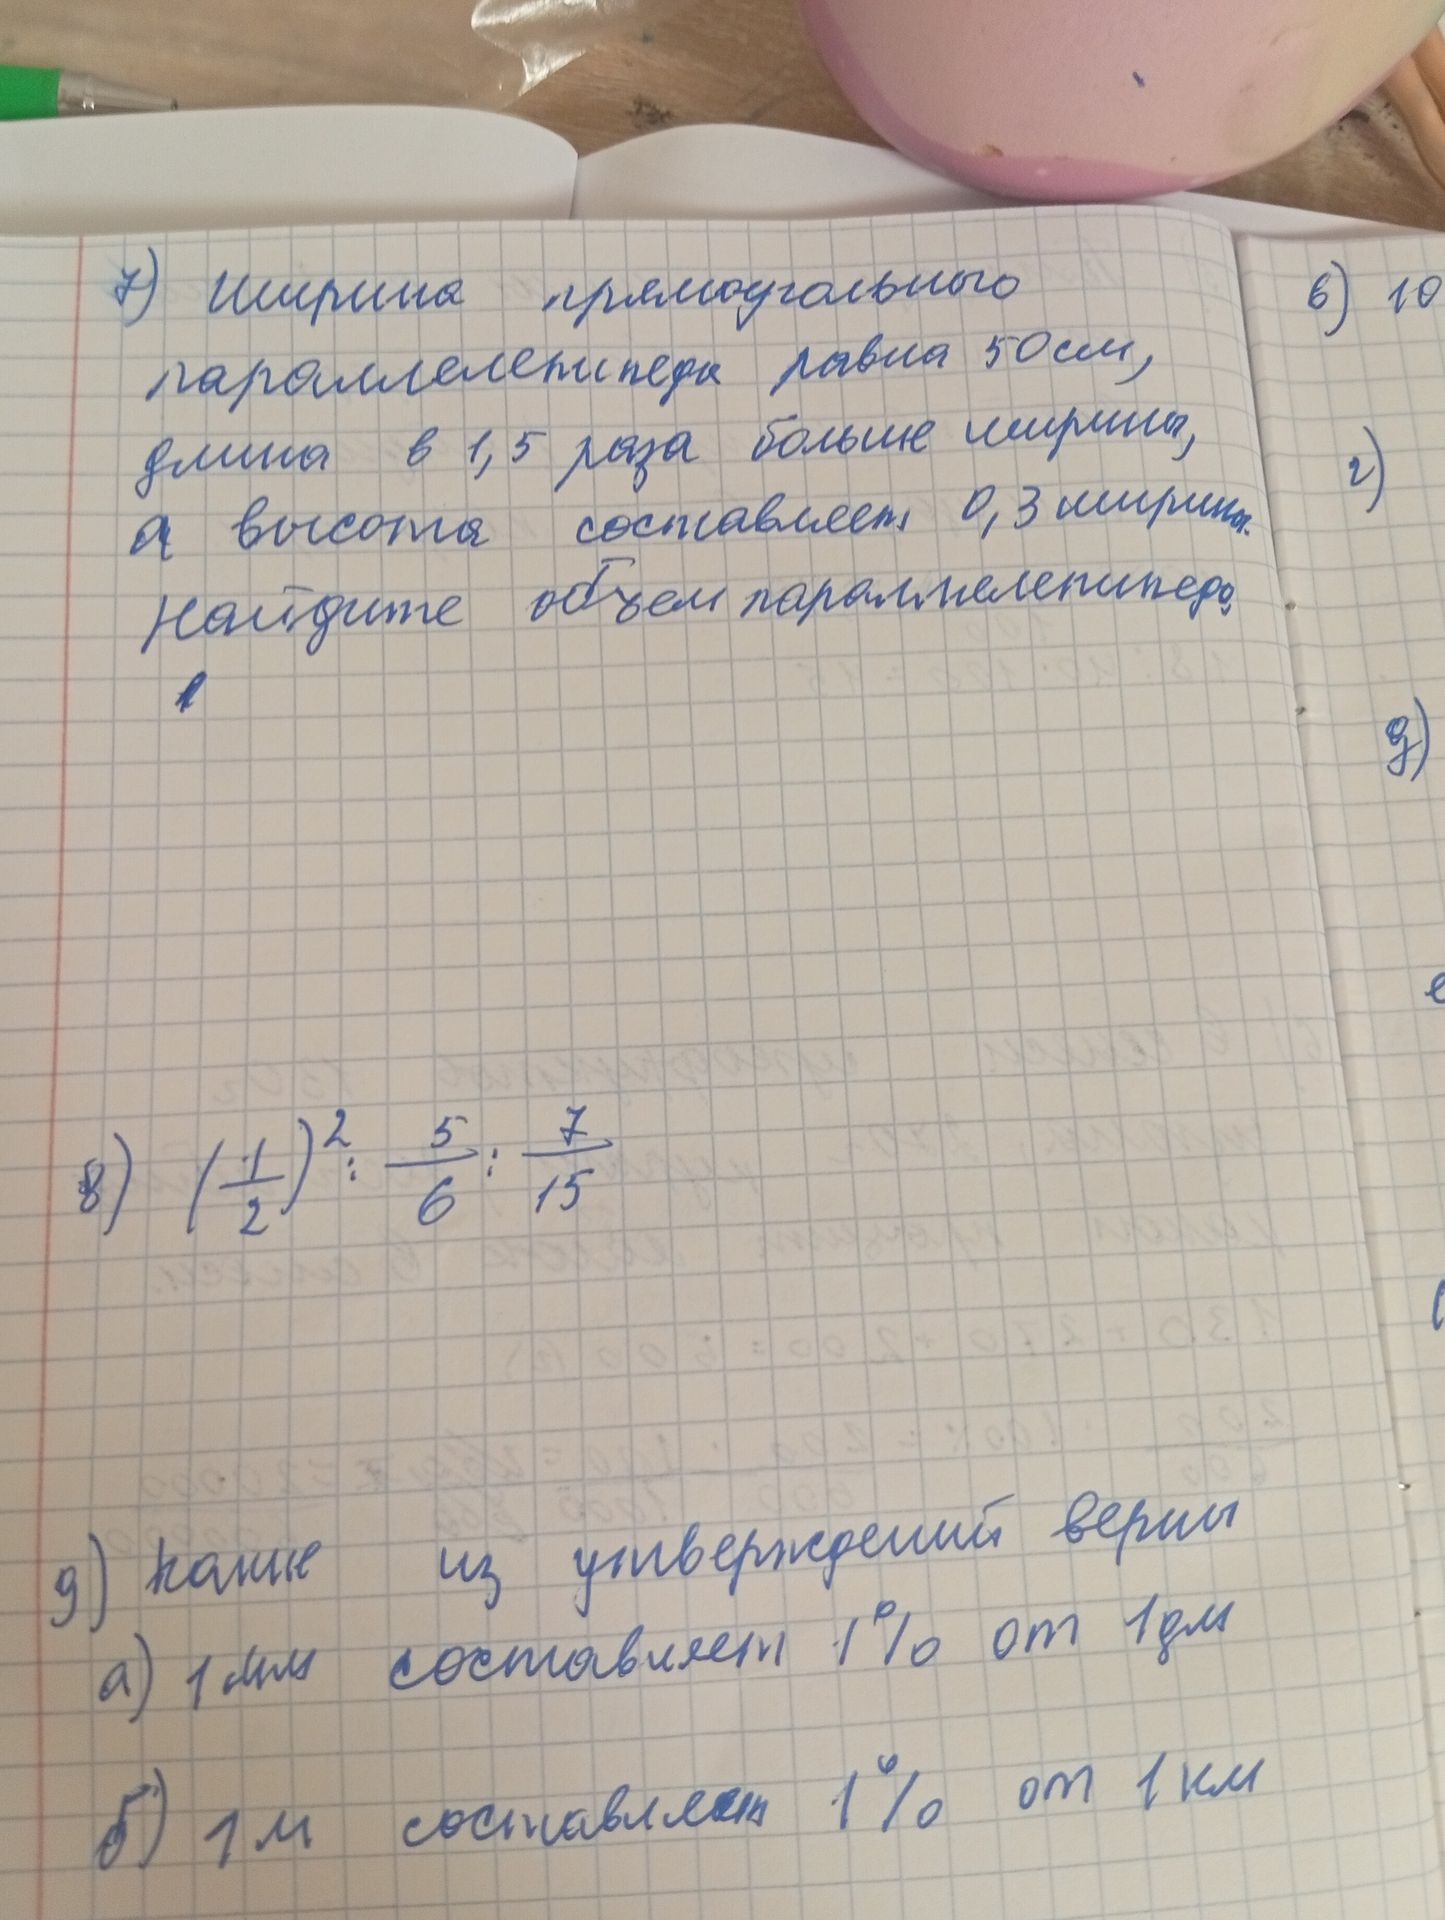 7) Ширина прямоугольного
параллелепипеда равна 50см,
длина в 1,5 раза больше ширины,
а высота составляет 0,3 ширины.
Найдите объем параллелепипеда,
8) (1/2)² : 5/6 : 7/15
9) какие из утверждений верны
а) 1мм составляет 1% от 1дм
б) 1м составляет 1% от 1км
в) 10
г)
д)